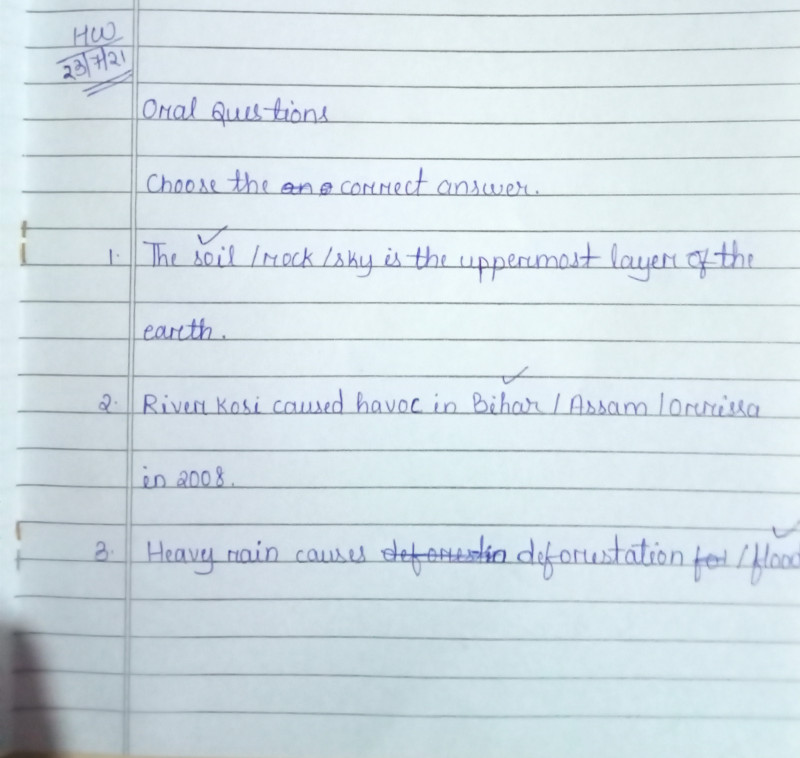 HW
23/7/21
Oral Questions
Choose the correct answer.
1. The soil / rock / sky is the uppermost layer of the
earth.
2. River Kosi caused havoc in Bihar / Assam / Orrissa
in 2008.
3. Heavy rain causes deforestation / flood